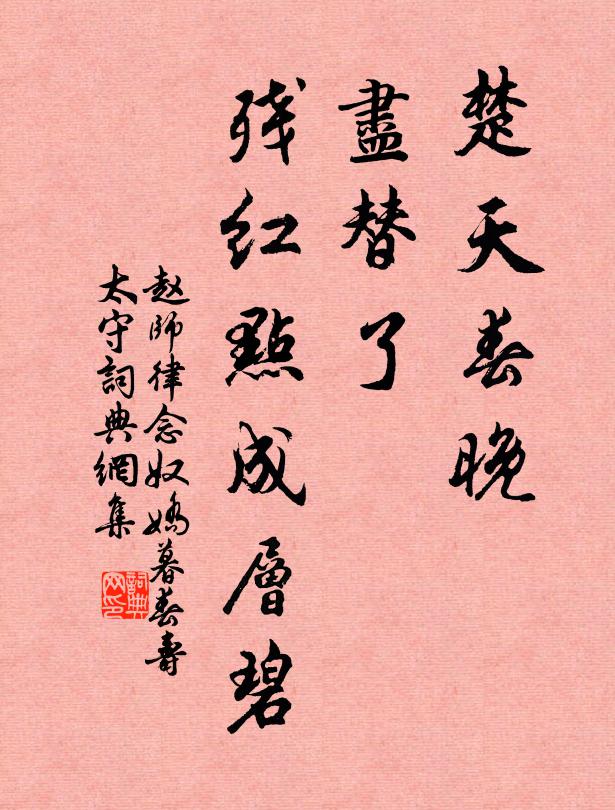 楚天春晚
盡替了
残红點成層碧
赵師律念奴嬌暮春壽
太守詞典網集
詞典网印